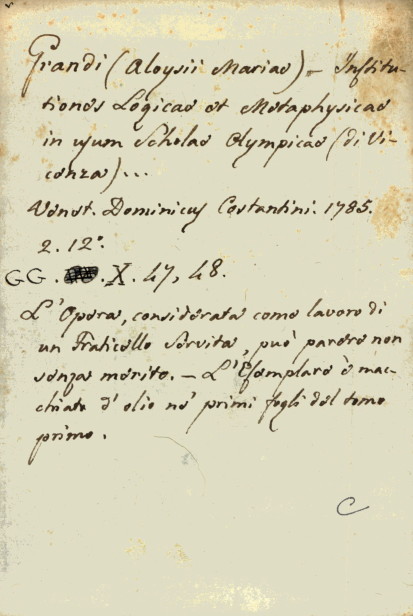 Grandi (Aloysii Mariae) – Institu-
tiones Logicae et Metaphysicae
in usum Scholae Olympicae (di Vi-
cenza)...
Venet. Dominicus Costantini. 1785.
2. 12°.
GG. X. 47, 48.
L'Opera, considerata come lavoro di
un Fraticello Servita, può parere non
senza merito. – L'Esemplare è mac-
chiato d'olio ne' primi fogli del tomo
primo.
C